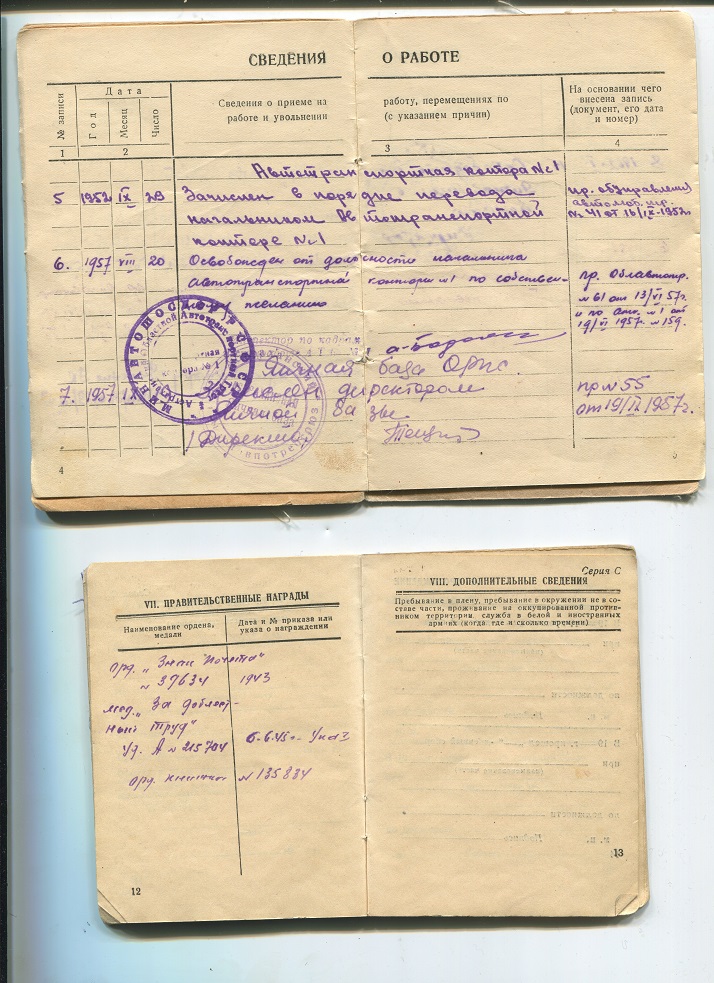 СВЕДЕНИЯ О РАБОТЕ
№ записи
Дата
Год
Месяц
Число
Сведения о приеме на работу, перемещениях по
работе и увольнении (с указанием причин)
На основании чего
внесена запись
(документ, его дата
и номер)
1 2 3 4
Автотранспортная контора №1
5 1952 IX 23 Зачислен в порядке перевода
начальником Автотранспортной
конторе №1
пр. облуправления
автомоб. пр.
№ 41 от 16/IX-1952г.
6. 1957 VIII 20 Освобожден от должности начальника
автотранспортной конторы №1 по собствен-
желанию
пр. Облавтотр.
№ 61 от 13/VI 57г.
и по № 1 от
19/VI 1957г. №159.
МИНАВТОШОСДОР РСФСР
по кадрам
база
7. 1957 IX директором
базы
пр № 55
от 19/IX 1957г.
/Директор
4
5
VII. ПРАВИТЕЛЬСТВЕННЫЕ НАГРАДЫ
Наименование ордена,
медали
Дата и № приказа или
указа о награждении
орд. „Знак Почета"
№ 37634 1943
мед. „За доблест-
ный труд"
Уд. А № 215704 6.6.45г. Указ
орд. книжка № 135834
12
Серия С
VIII. ДОПОЛНИТЕЛЬНЫЕ СВЕДЕНИЯ
Пребывание в плену, пребывание в окружении не в со-
ставе части, проживание на оккупированной против-
ником территории служба в белой и иностранных
армиях (когда, где и сколько времени)
13